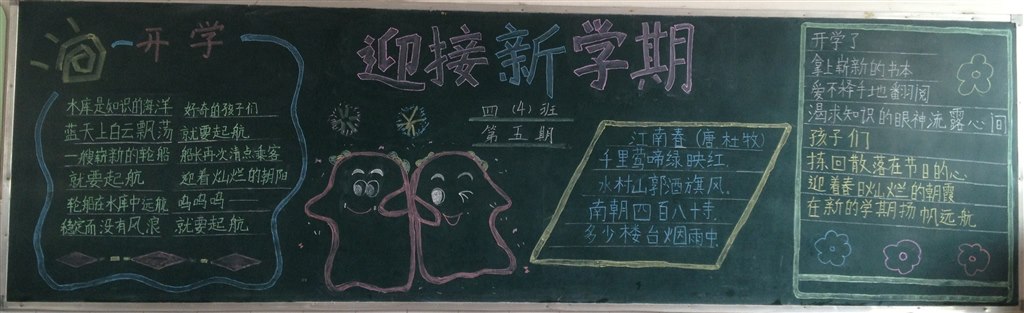 迎接新学期
四(4)班
第五期
开学
水库是知识的海洋 好奇的孩子们
蓝天上白云飘荡 就要起航
一艘崭新的轮船 船长再次清点乘客
就要起航 迎着灿烂的朝阳
轮船在水库中远航 呜呜呜
稳定而没有风浪 就要起航
江南春(唐杜牧)
千里莺啼绿映红
水村山郭酒旗风.
南朝四百八十寺.
多少楼台烟雨中.
开学了
拿上崭新的书本
爱不释手地翻阅
渴求知识的眼神流露心间
孩子们
拣回散落在节日的心
迎着春日灿烂的朝霞
在新的学期扬帆远航